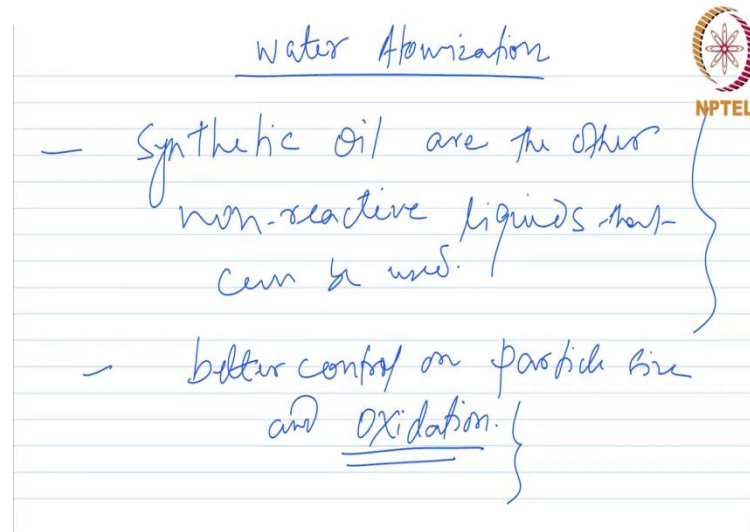 Water Atomization
NPTEL
- Synthetic oil are the other
non-reactive liquids that
can be used.
- better control on particle size
and oxidation.